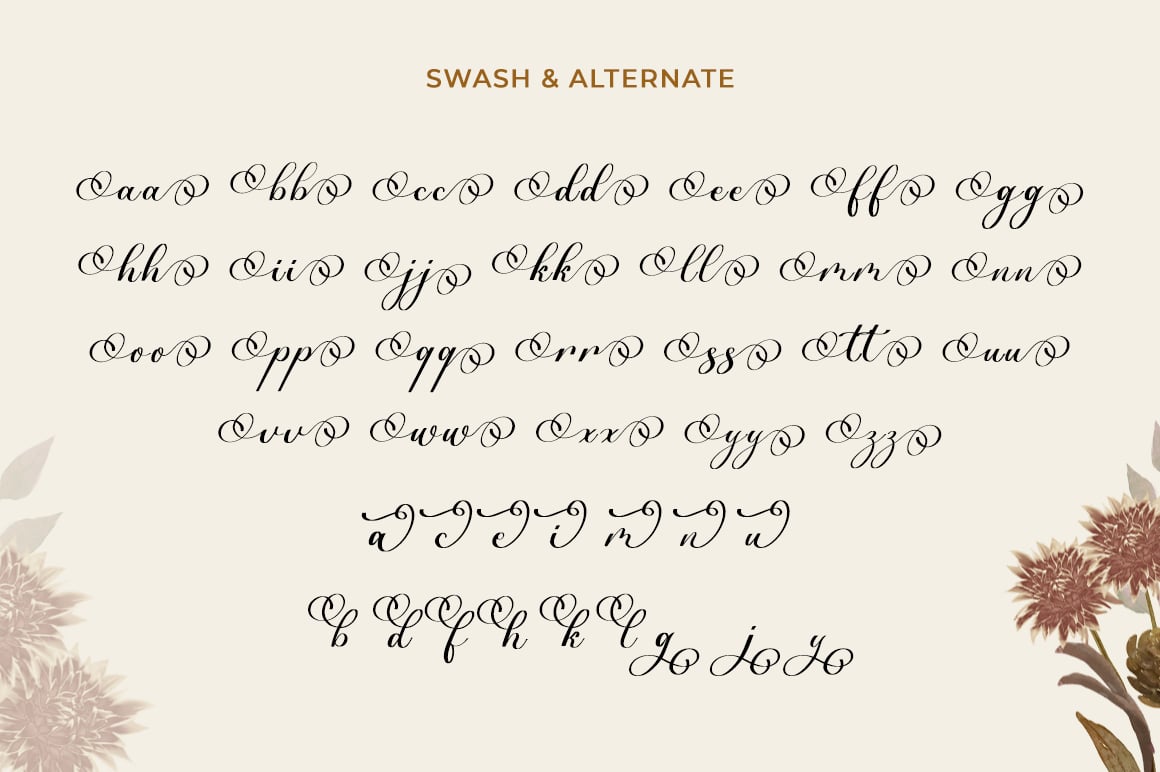 SWASH & ALTERNATE
aa bb cc dd ee ff gg
hh ii jj kk ll mm nn
oo pp qq rr ss tt uu
vv ww xx yy zz
a c e i m n u
b d f h k l g j y